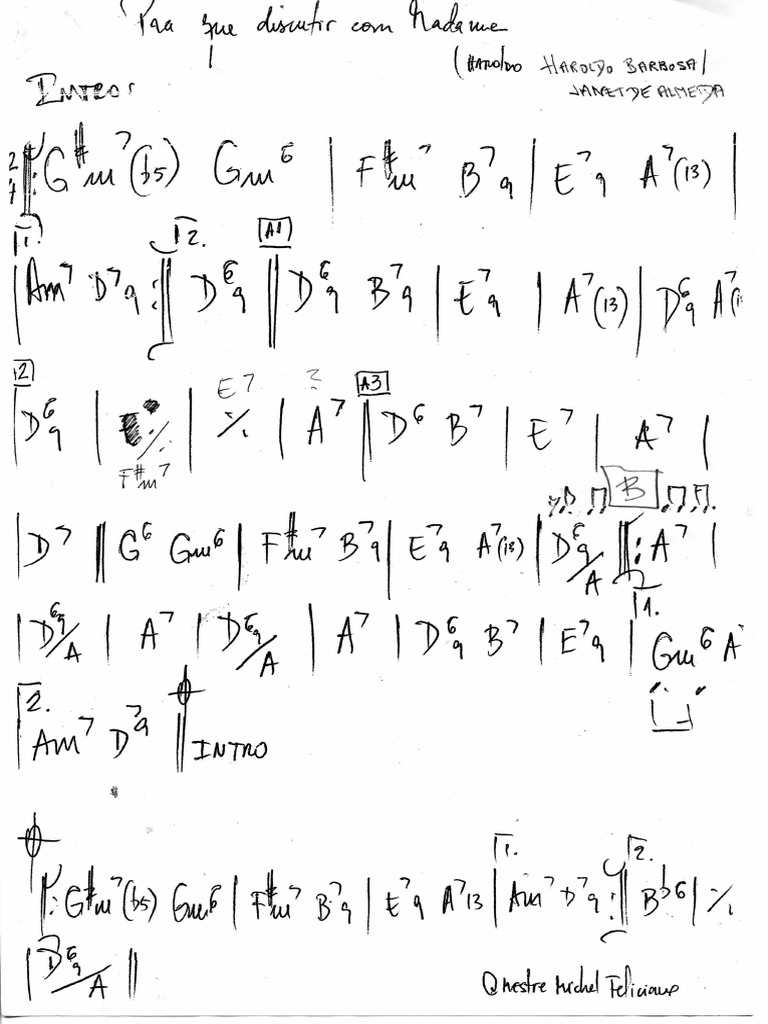 Pra que discutir com Madame
(HAROLDO HAROLDO BARBOSA/
JANET DE ALMEIDA
INTRO:
2/4 ||: G#m7(b5) Gm6 | F#m7 B7 9 | E7 9 A7(13) |
1. 2. A1
| Am7 D7 9 :|| D6 9 || D6 9 B7 9 | E7 9 | A7(13) | D6 9 A7(1
2 E7 ? A3
| D6 9 | ٪ | ٪ | A7 || D6 B7 | E7 | A7 |
F#m7
B
| D7 || G6 Gm6 | F#m7 B7 9 | E7 9 A7(13) | D6 9/A ||: A7 |
1.
| D6 9/A | A7 | D6 9/A | A7 | D6 9 B7 | E7 9 | Gm6 A7
2.
| Am7 D7 9 || INTRO
1. 2.
||: G#m7(b5) Gm6 | F#m7 B7 9 | E7 9 A7 13 | Am7 D7 9 :|| Bb6 | ٪
| D6 9/A ||
@mestre Michel Feliciano